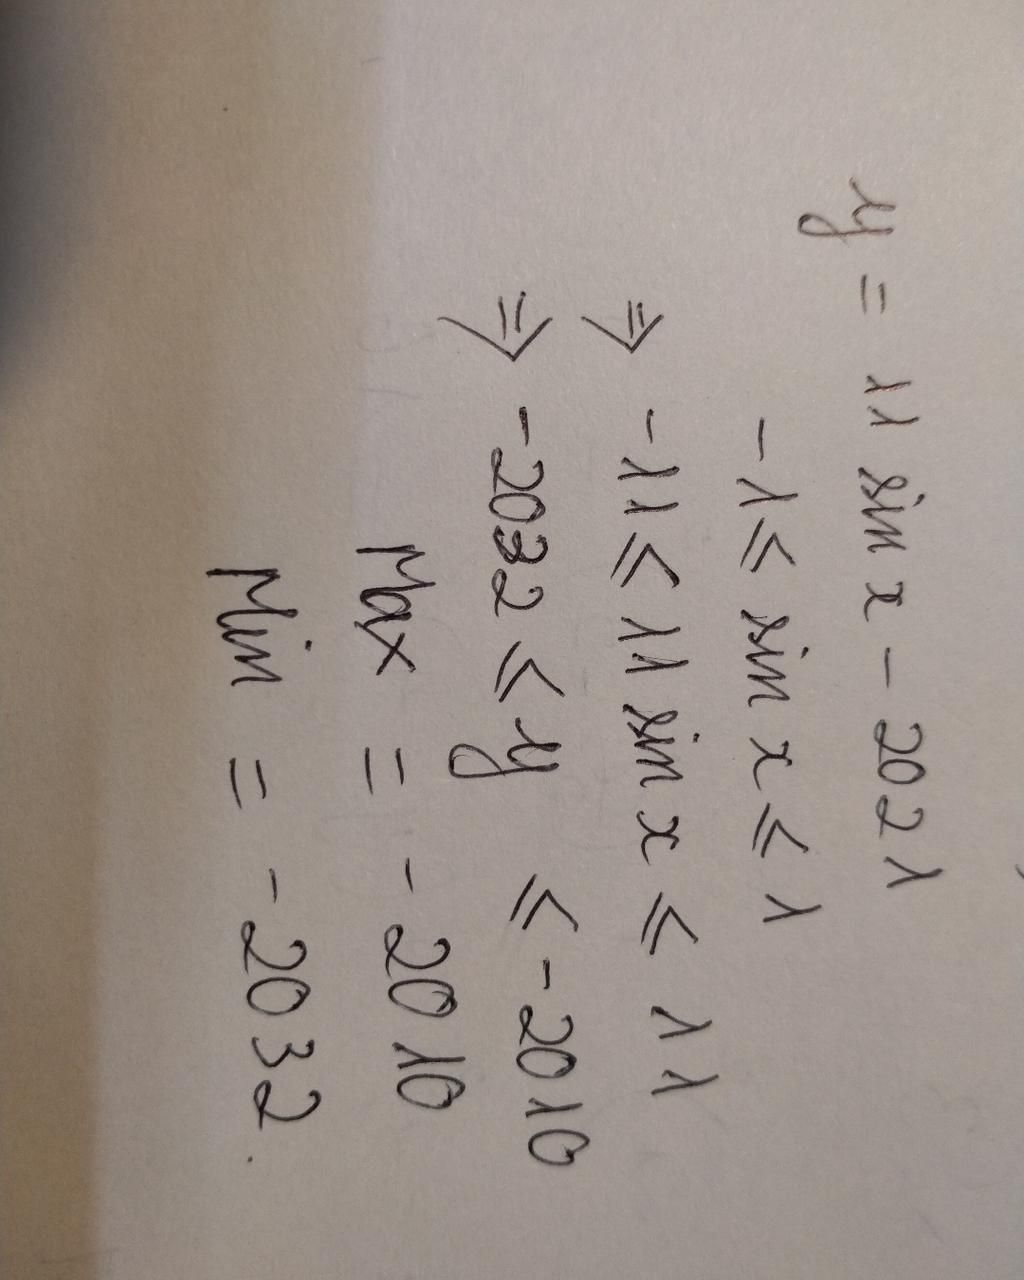 y = 11 sin x - 2021
-1 ≤ sin x ≤ 1
⇒ -11 ≤ 11 sin x ≤ 11
⇒ -2032 ≤ y ≤ -2010
Max = -2010
Min = -2032.